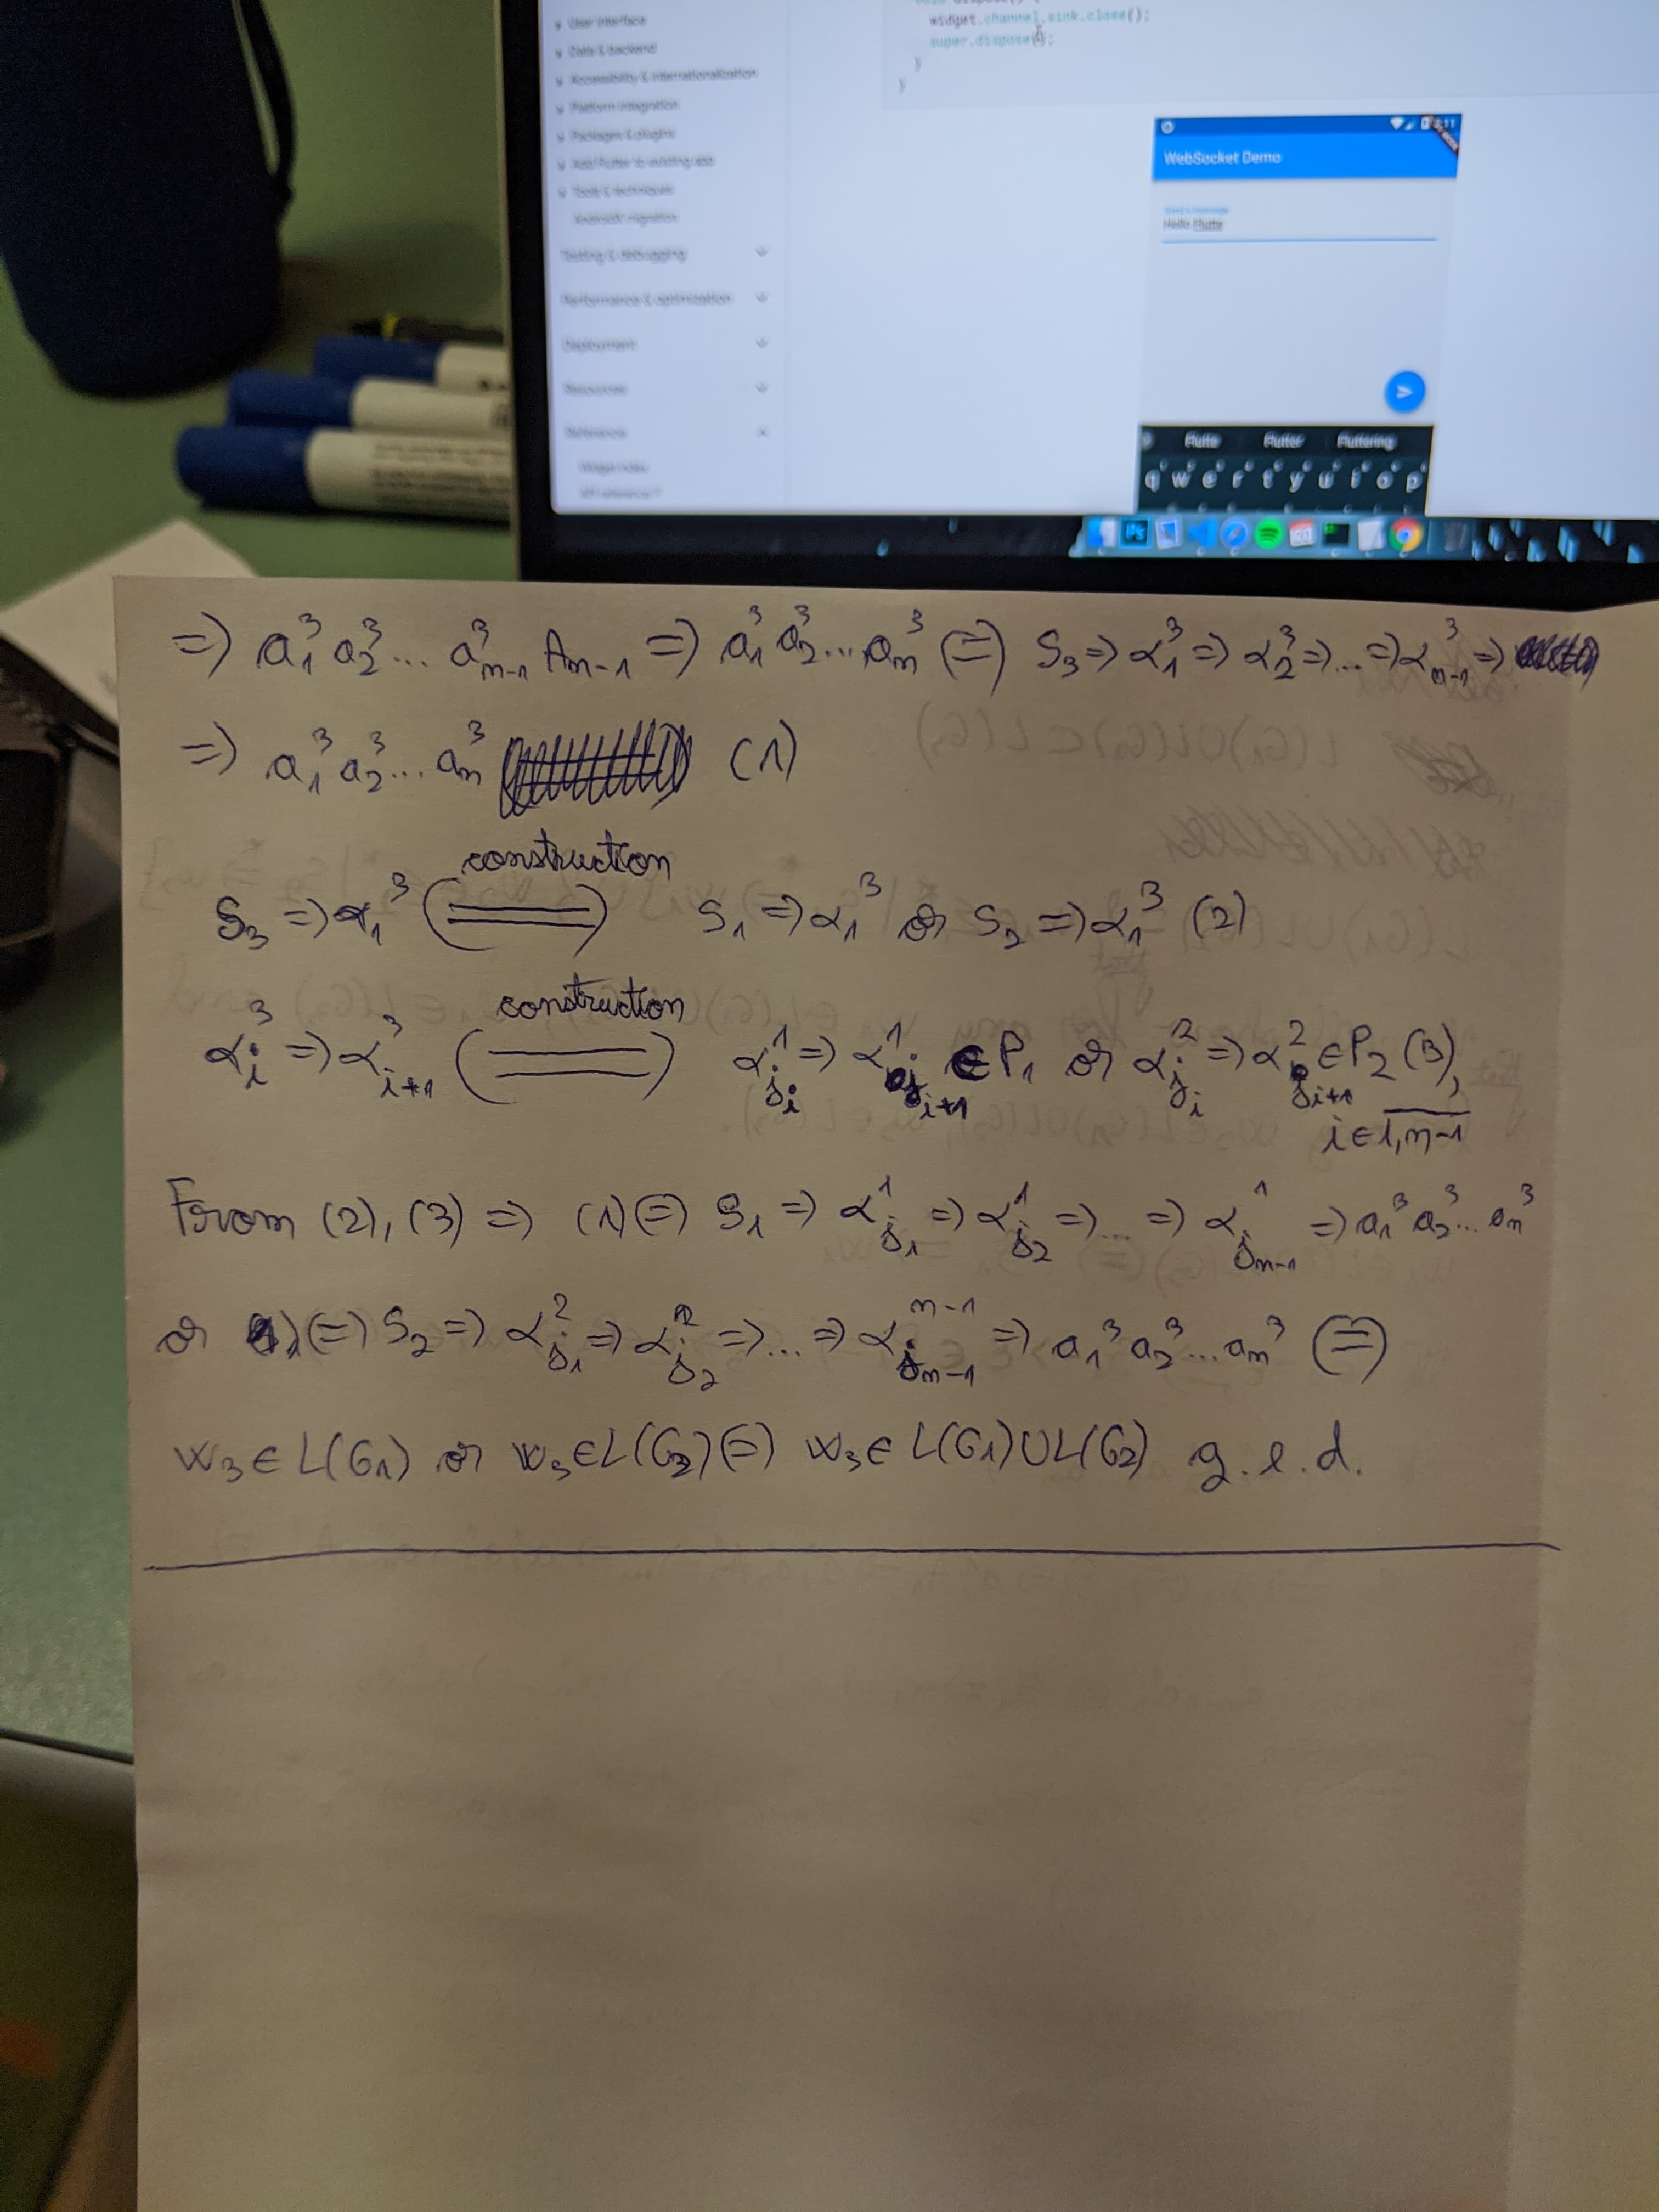 User interface
Data & backend
Accessibility & internationalization
Platform integration
Packages & plugins
Add Flutter to existing app
Tools & techniques
AndroidX migration
Testing & debugging
Performance & optimization
Deployment
Resources
Reference
Widget index
API reference
widget.channel.sink.close();
super.dispose();
}
}
WebSocket Demo
Send a message
Hello Flutte
Flutte Flutter Fluttering
q w e r t y u i o p
=> a₁³ a₂³ ... a³ₙ₋₁ Aₙ₋₁ => a₁³ a₂³ ... aₙ³ (=) S₃ => α₁³ => α₂³ => ... => α³ₙ₋₁ =>
=> a₁³ a₂³ ... aₙ³ (1)
construction
S₃ => α₁³ (==) S₁ => α₁³ or S₂ => α₁³ (2)
construction
αᵢ³ => α³ᵢ₊₁ (==) α¹_{jᵢ} => α¹_{jᵢ₊₁} ∈ P₁ or α²_{jᵢ} => α²_{jᵢ₊₁} ∈ P₂ (3),
i ∈ \overline{1,n-1}
From (2), (3) => (1) (=) S₁ => α¹_{j₁} => α¹_{j₂} => ... => α¹_{jₙ₋₁} => a₁³ a₂³ ... aₙ³
or (=) S₂ => α²_{j₁} => α²_{j₂} => ... => α^{n-1}_{jₙ₋₁} => a₁³ a₂³ ... aₙ³ (=)
w₃ ∈ L(G₁) or w₃ ∈ L(G₂) (=) w₃ ∈ L(G₁) ∪ L(G₂) q.e.d.